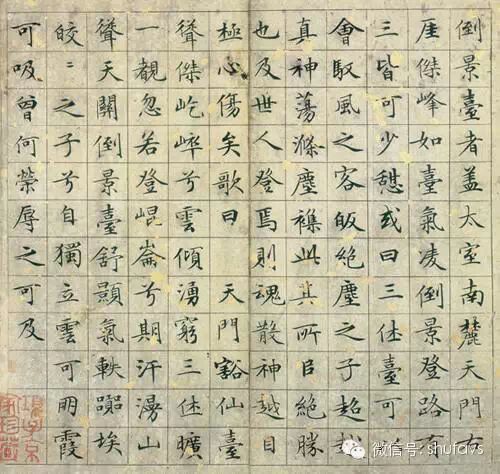 倒景臺者盖太室南麓天門右
厓傑峰如臺氣凌倒景登路有
三皆可少憩或曰三休臺可以
會馭風之客皈絶塵之子超越
真神蕩滌塵襟此其所㠯絶勝
也及世人登焉則魂散神越目
極心傷矣歌曰 天門豁仙臺
聳傑屹崒兮雲傾湧窮三休曠
一覩忽若登崐崙兮期汗漫山
聳天關倒景臺舒顥氣軼囂埃
皎〻之子兮自獨立雲可朋霞
可吸曾何榮辱之可及
項子京家珍藏
微信号: shufavs